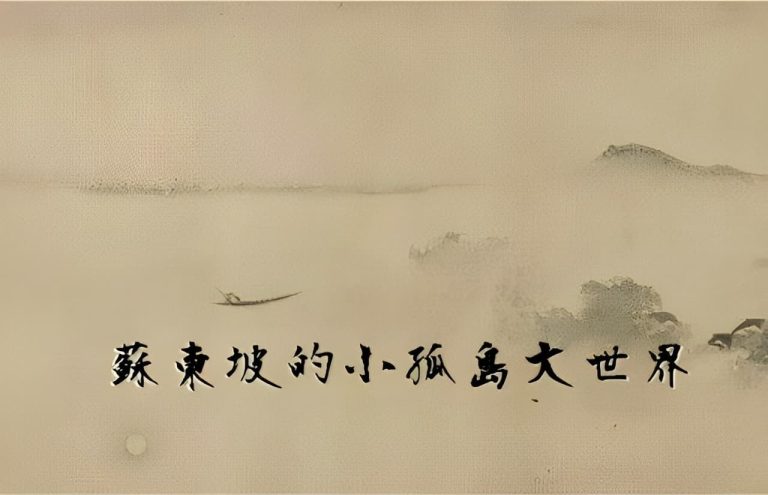 蘇東坡的小孤島大世界